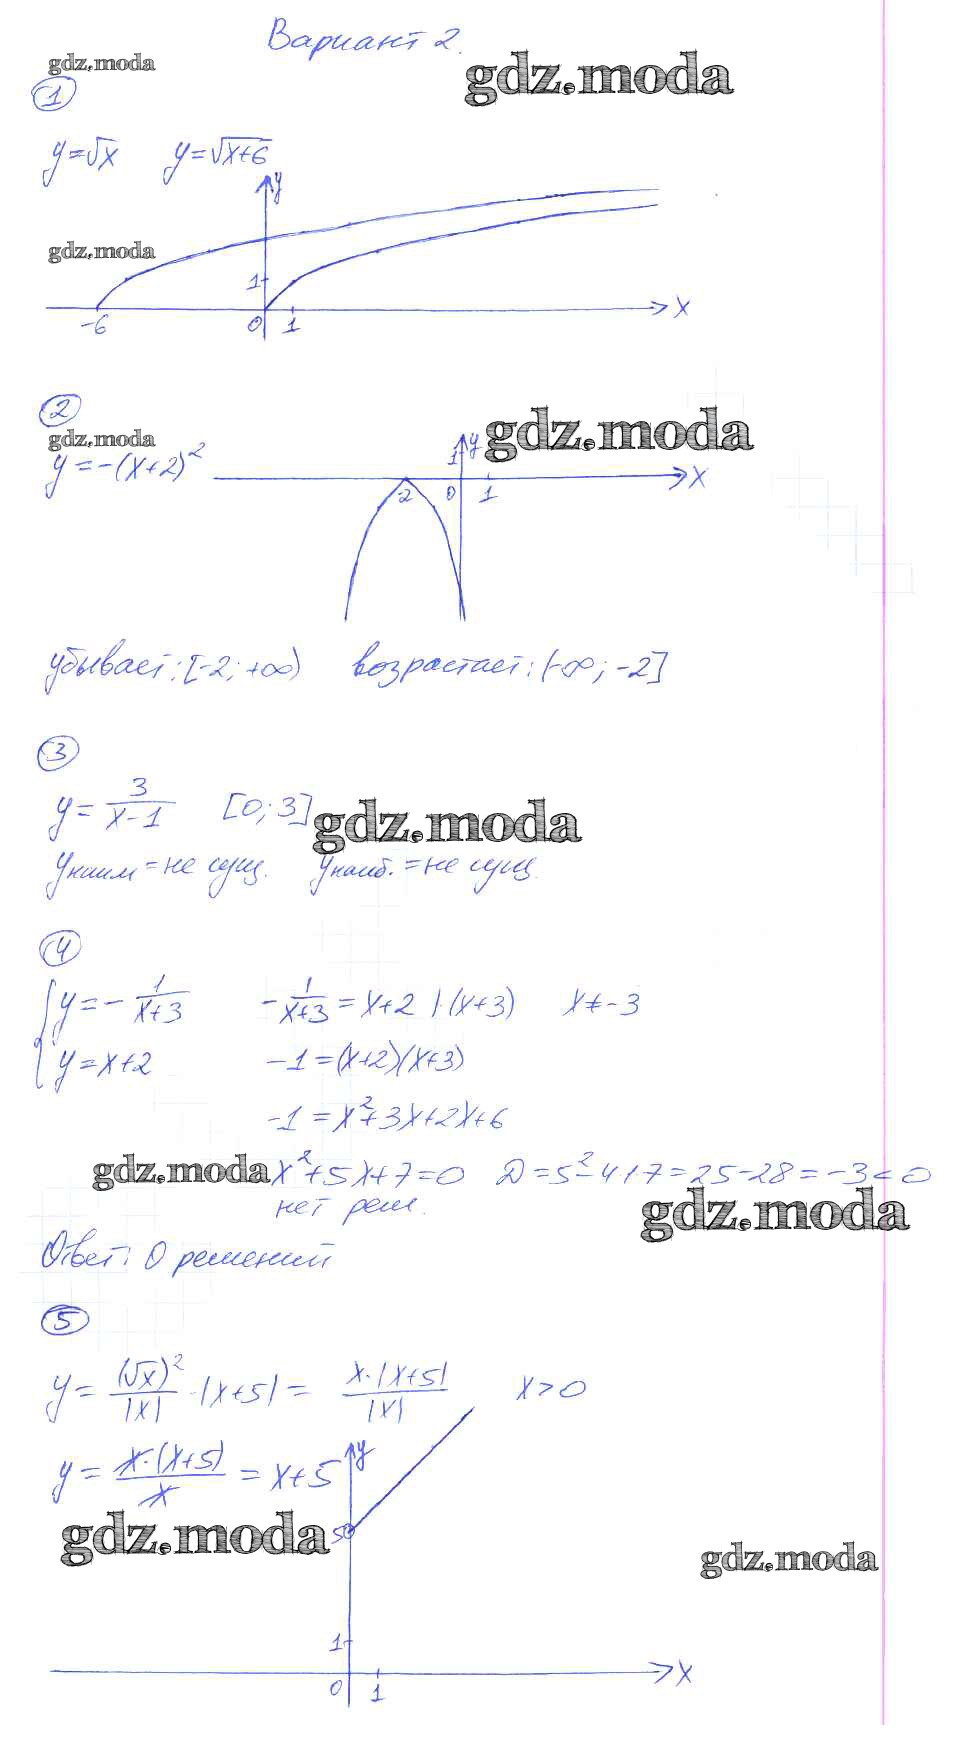 Вариант 2.
gdz.moda
gdz.moda
1
y=√x y=√x+6
y
gdz.moda
1
-6 0 1 x
2
gdz.moda
gdz.moda
y=-(x+2)²
1 y
-2 0 1 x
убывает: [-2; +∞) возрастает: (-∞; -2]
3
y= 3/(x-1) [0; 3]
gdz.moda
yнаим = не сущ. yнаиб. = не сущ.
4
{y=- 1/(x+3) - 1/(x+3) = x+2 | · (x+3) x≠-3
y=x+2 -1=(x+2)(x+3)
-1=x²+3x+2x+6
gdz.moda x²+5x+7=0 D=5²-4·7=25-28=-3<0
нет реш.
gdz.moda
Ответ: 0 решений
5
y= (√x)²/|x| · |x+5| = x·|x+5|/|x| x>0
y= x·(x+5)/x = x+5
y
gdz.moda
5
gdz.moda
1
0 1 x